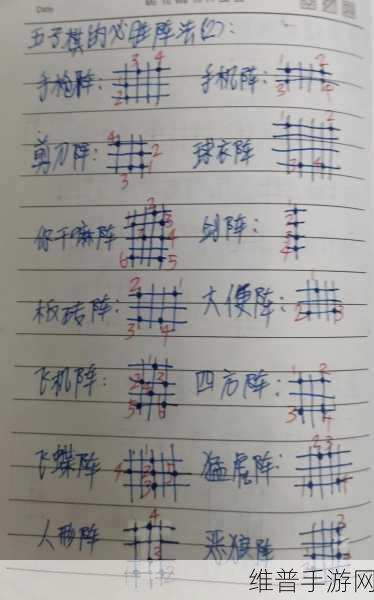 Date
五子棋的必胜阵法(2):
手枪阵: 1 3 4 2 手机阵: 1 2 3 4
剪刀阵: 4 2 1 3 球衣阵 1 2 3 4
你干嘛阵 6 5 剑阵: 1 2 3 4
板砖阵: 2 1 3 4 大便阵: 1 2 3
飞机阵: 四方阵: 1 2 3 4
飞蝶阵 4 猛虎阵: 2 3
人形阵 4 3 2 恶狼阵
维普手游网